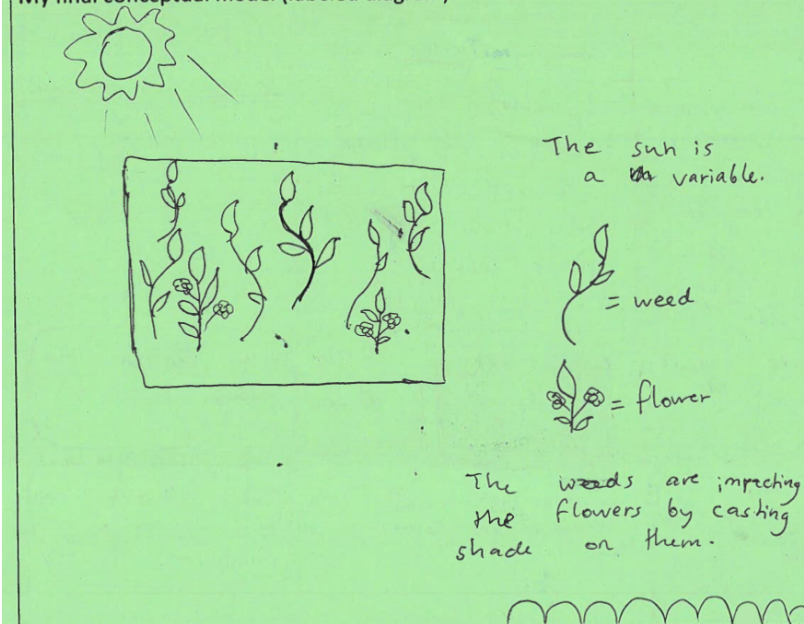 My final conceptual model (labeled diagram)
The sun is
a variable.
= weed
= flower
The weeds are impacting
the flowers by casting
shade on them.